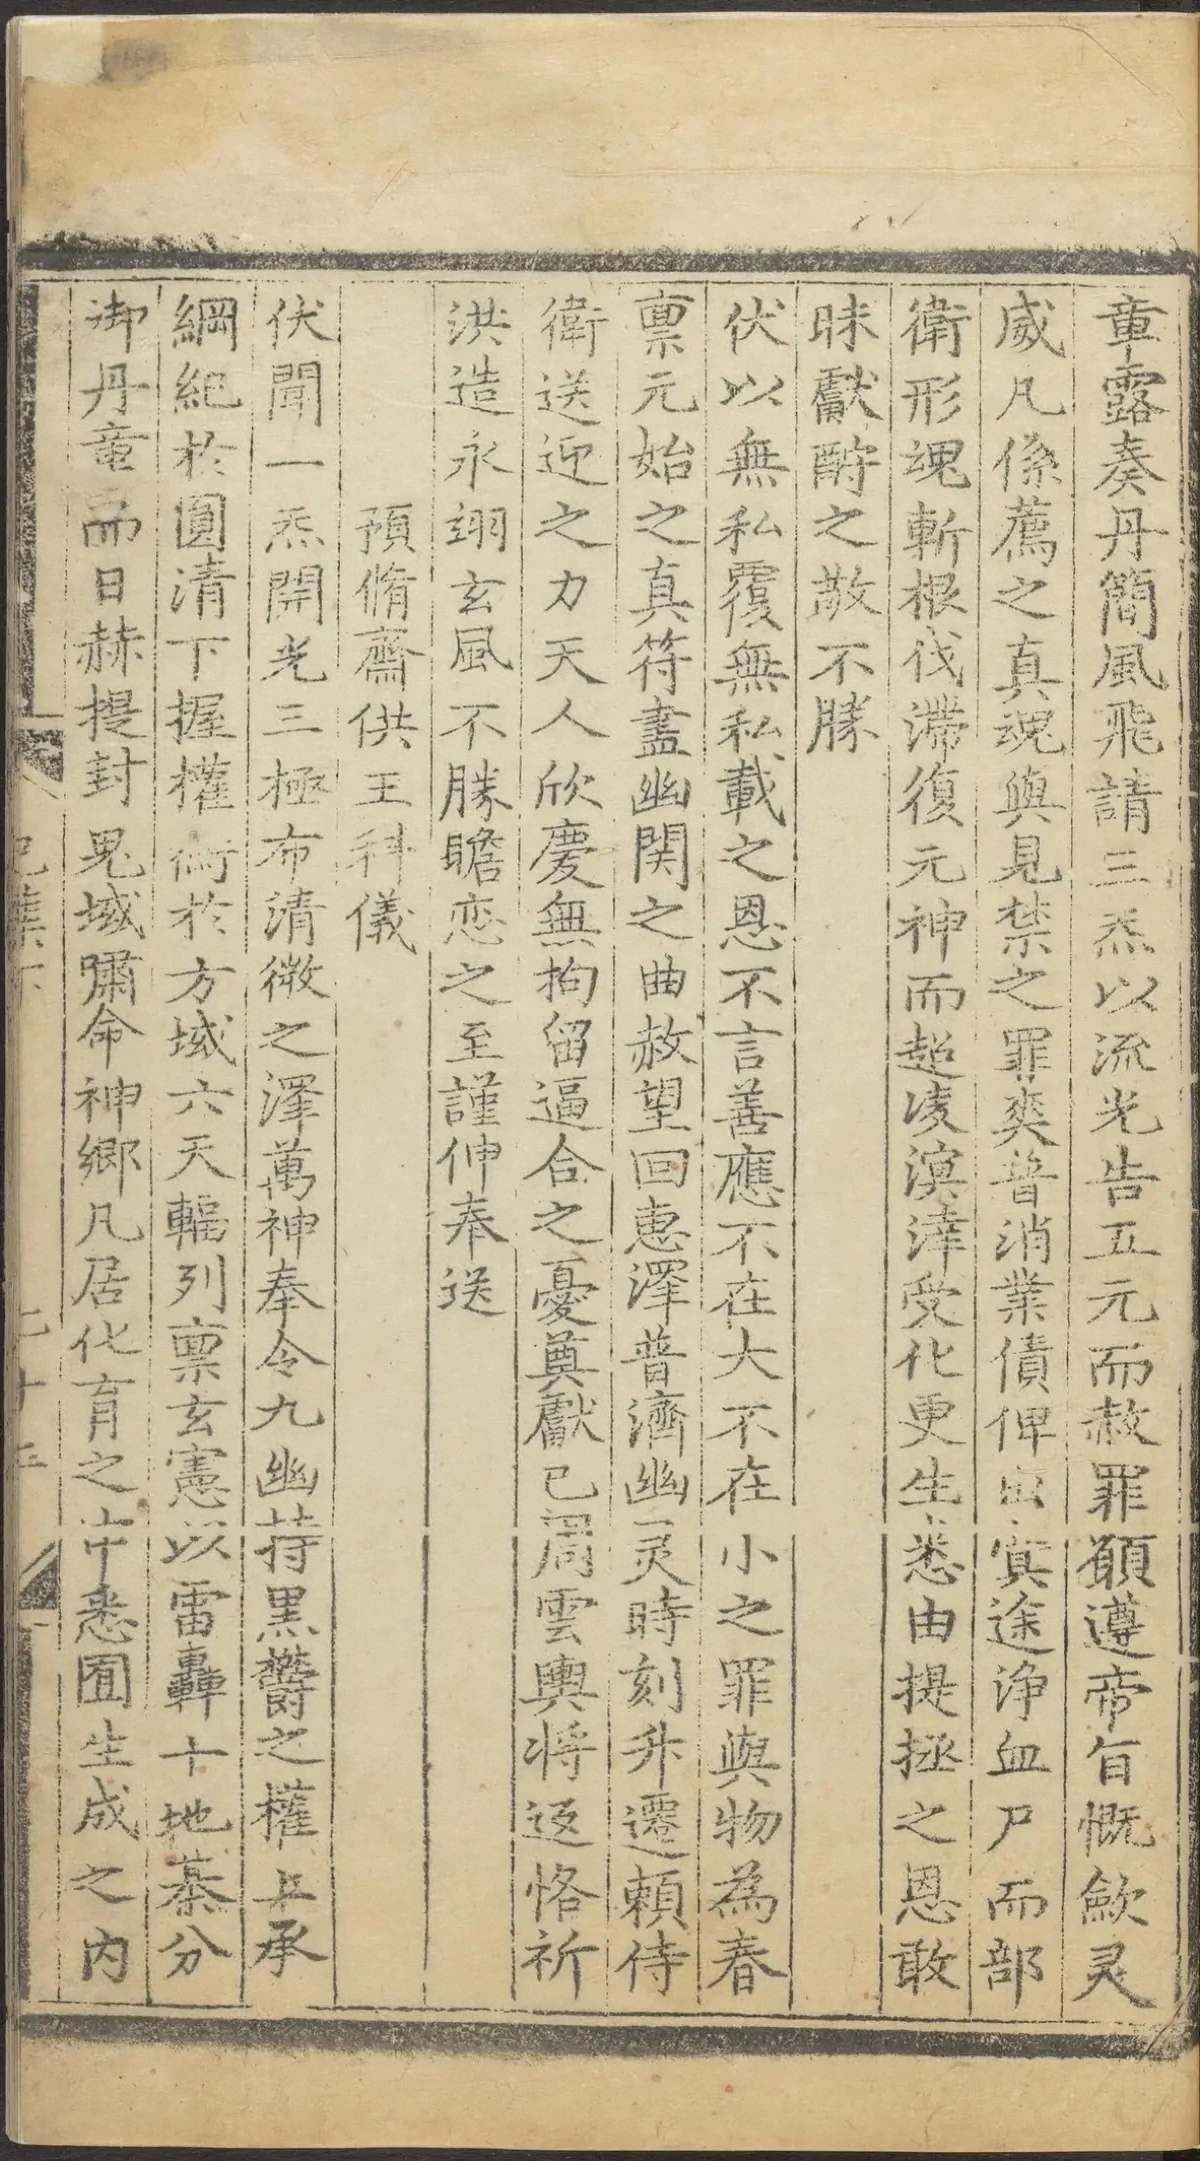 章露奏丹簡風飛請三炁以流光告五元而赦罪願遵帝旨慨歛灵
威凡係薦之真魂與見禁之罪爽普消業債俾出寘途浄血尸而部
衛形魂斬根伐滯復元神而超凌溟涬受化更生悉由提拯之恩敢
昧獻酹之敬不勝
伏以無私覆無私載之恩不言善應不在大不在小之罪與物為春
禀元始之真符盡幽関之曲赦望回恵澤普濟幽灵時刻升遷頼侍
衛送迎之力天人欣慶無拘留逼合之憂奠獻已周雲輿将返恪祈
洪造永翊玄風不勝瞻恋之至謹伸奉送
預脩齋供王科儀
伏聞一炁開光三極布清微之澤萬神奉令九幽持黒欝之權上承
綱紀於圓清下握權衡於方域六天輻列禀玄憲以雷轟十地棊分
御丹童而日赫提封鬼域嘯命神鄉凡居化育之中悉囿生成之内